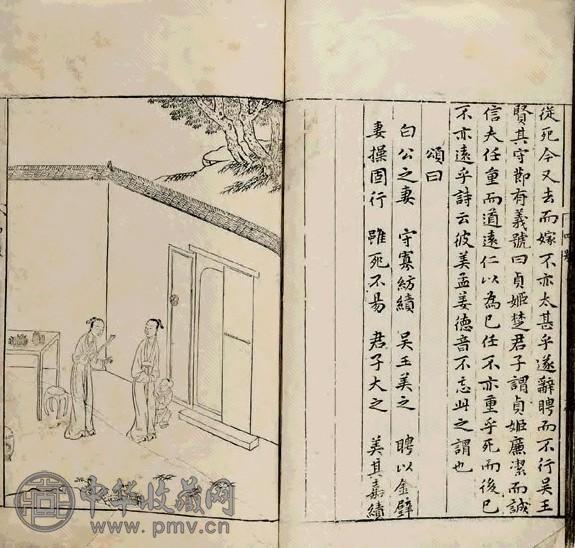 從死今又去而嫁不亦太甚乎遂辭聘而不行吴王
賢其守節有義號曰貞姬楚君子謂貞姬廉潔而誠
信夫任重而道遠仁以為已任不亦重乎死而後已
不亦遠乎詩云彼美孟姜德音不忘此之謂也
頌曰
白公之妻 守寡紡績 吴王美之 聘以金璧
妻操固行 雖死不易 君子大之 美其嘉績
中华收藏网
www.pmv.cn